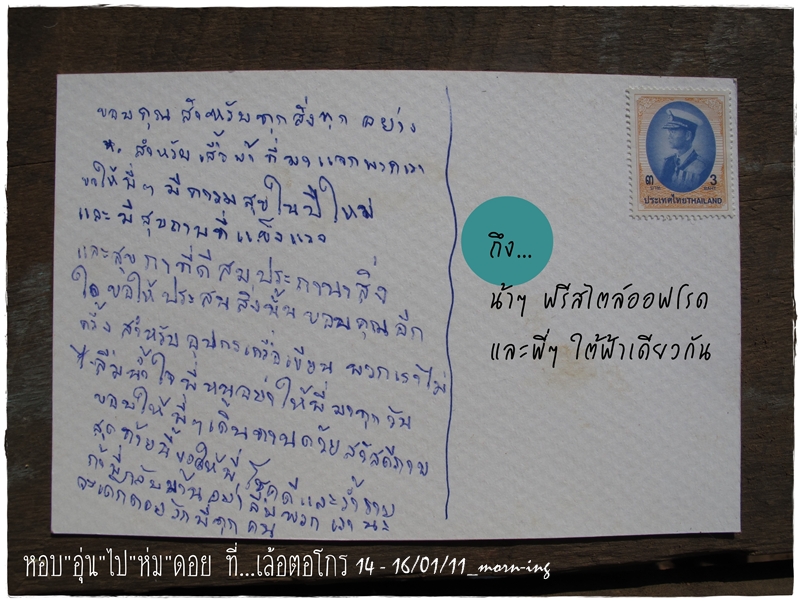 ขอบคุณ สำหรับทุกสิ่งทุก อย่าง
สำหรับ เสื้อผ้า ที่ มา แจกพวกเรา
ขอให้พี่ๆ มีความสุขในปีใหม่
และ มีสุขภาพที่แข็งแรง
และสุข ที่ดี สม สิ่ง
ใด ขอให้ ประสบ สิ่งนั้น ขอบคุณ อีก
ครั้ง สำหรับ อุปกรเครื่อเขียน พวกเราไม่
ลืมน้ำใจ พี่ ให้พี่ มาทุก วัน
ขอให้ พี่ๆเดินทางด้วย สวัสดีภาพ
สุดท้ายนี้ขอให้พี่ โชคดี และร่ำรวย
พี่กลับบ้าน อย่าลืม พวก เรา นะ
จะ รักพี่ทุก คน
ประเทศไทยTHAILAND
๓ บาท 3
ถึง...
น้าๆ ฟรีสไตล์ออฟโรด
และพี่ๆ ใต้ฟ้าเดียวกัน
หอบ"อุ่น"ไป"ห่ม"ดอย ที่...เล้อตอโกร 14 - 16/01/11_morn-ing